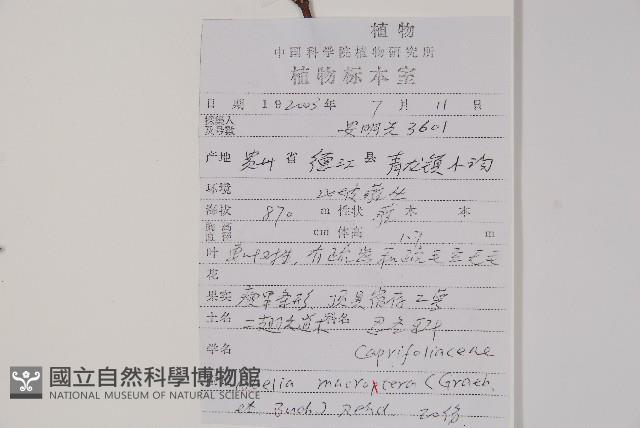 植物
中国科学院植物研究所
植物标本室
日期 19 2003年 7月 11日
采集人
及号数 安明态 3601
产地 贵州 省 德江 县 青龙镇 小沟
环境 山坡灌丛
海拔 870 m 性状 灌木 本
胸高
直径 cm 体高 1.7 m
叶 单叶对生, 有疏
花
果实 瘦果条形 顶具宿存二萼
土名 二翅六道木 科名 忍冬科
学名 Caprifoliaceae
macroptera (Graeb.
et Buch) Rehd 20份
國立自然科學博物館
NATIONAL MUSEUM OF NATURAL SCIENCE